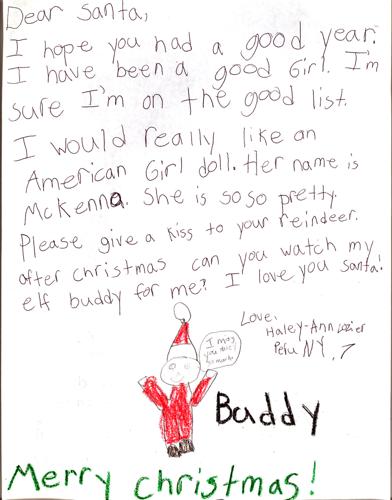 Dear Santa,
I hope you had a good year.
I have been a good Girl. I'm
sure I'm on the good list.
I would really like an
American Girl doll. Her name is
McKenna. She is so so pretty.
Please give a kiss to your reindeer.
after christmas can you watch my
elf buddy for me? I love you Santa!
Love,
Haley-Ann Lozier
Peru NY, 7
I may
you
Buddy
Merry christmas!